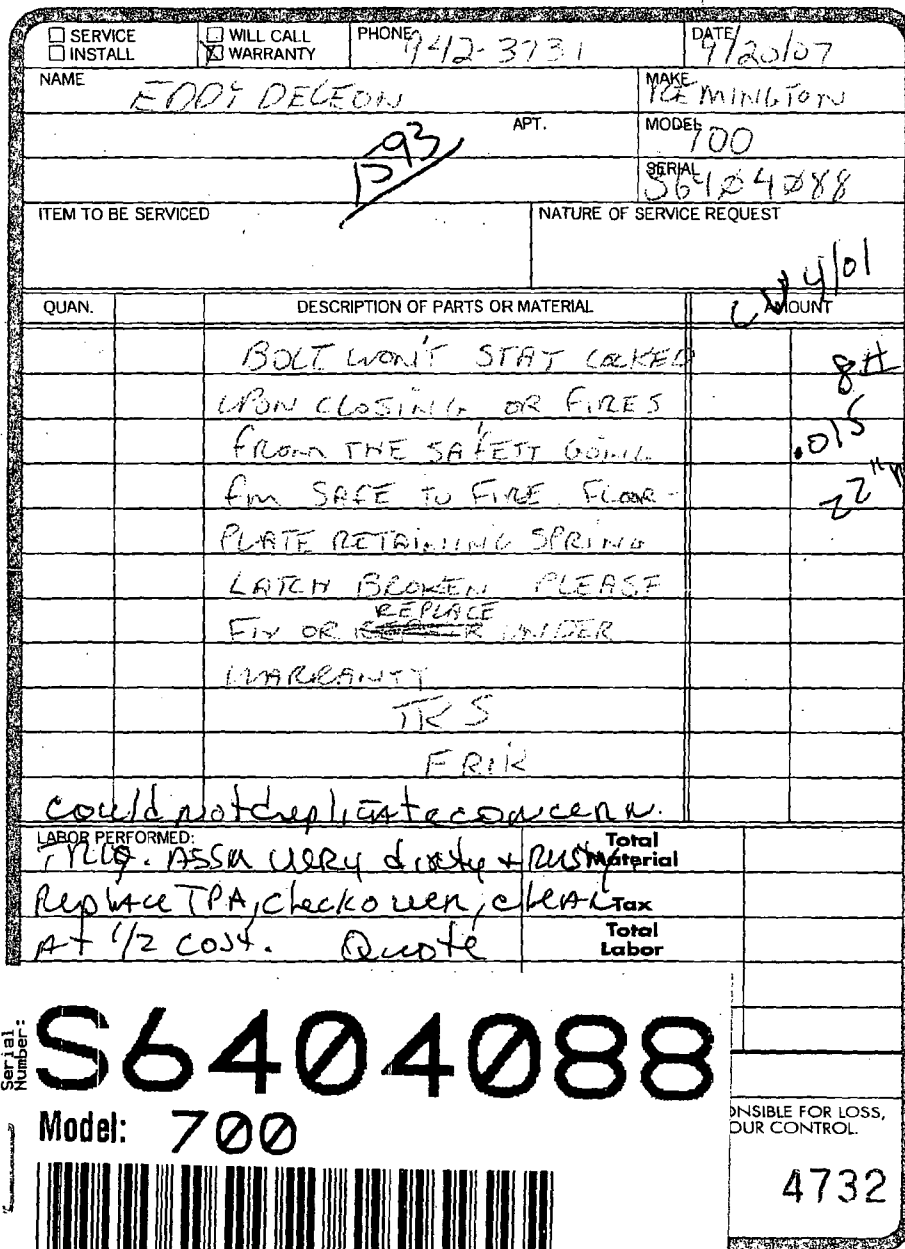 ☐ SERVICE ☐ WILL CALL PHONE 942-3731 DATE 9/20/07
☐ INSTALL ☒ WARRANTY
NAME EDDY DELEON MAKE REMINGTON
APT. MODEL 700
1593
SERIAL S6404088
ITEM TO BE SERVICED NATURE OF SERVICE REQUEST
4/01
QUAN. DESCRIPTION OF PARTS OR MATERIAL AMOUNT
BOLT WON'T STAY LOCKED
8#
UPON CLOSING OR FIRES
.015
FROM THE SAFETY GOING
22"
fm SAFE TO FIRE. FLOOR-
PLATE RETAINING SPRING
LATCH BROKEN PLEASE
FIX OR REPLACE UNDER
WARRANTY
TKS
ERIK
could not duplicate concern.
LABOR PERFORMED: Total Material
TRIG. ASSM very dirty + Rusty
Replace TPA, check over, clean Tax
At 1/2 cost. Quote Total Labor
Serial Number:
S6404088
Model: 700
ONSIBLE FOR LOSS,
OUR CONTROL.
4732